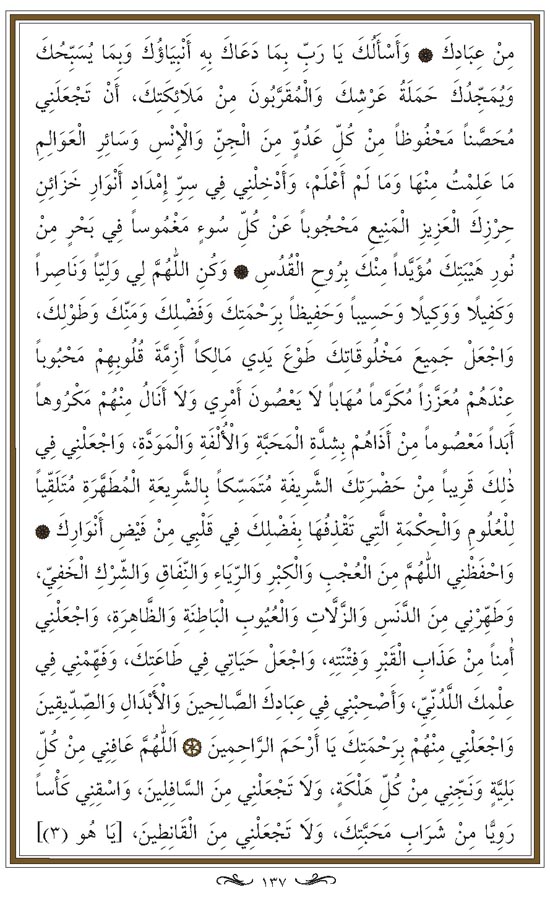 مِنْ عِبَادِكَ ۞ وَأَسْأَلُكَ يَا رَبِّ بِمَا دَعَاكَ بِهِ أَنْبِيَاؤُكَ وَبِمَا يُسَبِّحُكَ
وَيُمَجِّدُكَ حَمَلَةُ عَرْشِكَ وَالْمُقَرَّبُونَ مِنْ مَلَائِكَتِكَ، أَنْ تَجْعَلَنِي
مُحَصَّناً مَحْفُوظاً مِنْ كُلِّ عَدُوٍّ مِنَ الْجِنِّ وَالْإِنْسِ وَسَائِرِ الْعَوَالِمِ
مَا عَلِمْتُ مِنْهَا وَمَا لَمْ أَعْلَمْ، وَأَدْخِلْنِي فِي سِرِّ إِمْدَادِ أَنْوَارِ خَزَائِنِ
حِرْزِكَ الْعَزِيزِ الْمَنِيعِ مَحْجُوباً عَنْ كُلِّ سُوءٍ مَغْمُوساً فِي بَحْرٍ مِنْ
نُورِ هَيْبَتِكَ مُؤَيَّداً مِنْكَ بِرُوحِ الْقُدُسِ ۞ وَكُنِ اللّٰهُمَّ لِي وَلِيّاً وَنَاصِراً
وَكَفِيلًا وَوَكِيلًا وَحَسِيباً وَحَفِيظاً بِرَحْمَتِكَ وَفَضْلِكَ وَمَنِّكَ وَطَوْلِكَ،
وَاجْعَلْ جَمِيعَ مَخْلُوقَاتِكَ طَوْعَ يَدِي مَالِكاً أَزِمَّةَ قُلُوبِهِمْ مَحْبُوباً
عِنْدَهُمْ مُعَزَّزاً مُكَرَّماً مُهَاباً لَا يَعْصُونَ أَمْرِي وَلَا أَنَالُ مِنْهُمْ مَكْرُوهاً
أَبَداً مَعْصُوماً مِنْ أَذَاهُمْ بِشِدَّةِ الْمَحَبَّةِ وَالْأُلْفَةِ وَالْمَوَدَّةِ، وَاجْعَلْنِي فِي
ذٰلِكَ قَرِيباً مِنْ حَضْرَتِكَ الشَّرِيفَةِ مُتَمَسِّكاً بِالشَّرِيعَةِ الْمُطَهَّرَةِ مُتَلَقِّياً
لِلْعُلُومِ وَالْحِكْمَةِ الَّتِي تَقْذِفُهَا بِفَضْلِكَ فِي قَلْبِي مِنْ فَيْضِ أَنْوَارِكَ ۞
وَاحْفَظْنِي اللّٰهُمَّ مِنَ الْعُجْبِ وَالْكِبْرِ وَالرِّيَاءِ وَالنِّفَاقِ وَالشِّرْكِ الْخَفِيِّ،
وَطَهِّرْنِي مِنَ الدَّنَسِ وَالزَّلَّاتِ وَالْعُيُوبِ الْبَاطِنَةِ وَالظَّاهِرَةِ، وَاجْعَلْنِي
اٰمِناً مِنْ عَذَابِ الْقَبْرِ وَفِتْنَتِهِ، وَاجْعَلْ حَيَاتِي فِي طَاعَتِكَ، وَفَهِّمْنِي فِي
عِلْمِكَ اللَّدُنِّيِّ، وَأَصْحِبْنِي فِي عِبَادِكَ الصَّالِحِينَ وَالْأَبْدَالِ وَالصِّدِّيقِينَ
وَاجْعَلْنِي مِنْهُمْ بِرَحْمَتِكَ يَا أَرْحَمَ الرَّاحِمِينَ ۞ اَللّٰهُمَّ عَافِنِي مِنْ كُلِّ
بَلِيَّةٍ وَنَجِّنِي مِنْ كُلِّ هَلْكَةٍ، وَلَا تَجْعَلْنِي مِنَ السَّافِلِينَ، وَاسْقِنِي كَأْساً
رَوِيًّا مِنْ شَرَابِ مَحَبَّتِكَ، وَلَا تَجْعَلْنِي مِنَ الْقَانِطِينَ، [يَا هُو (٣)]
١٣٧